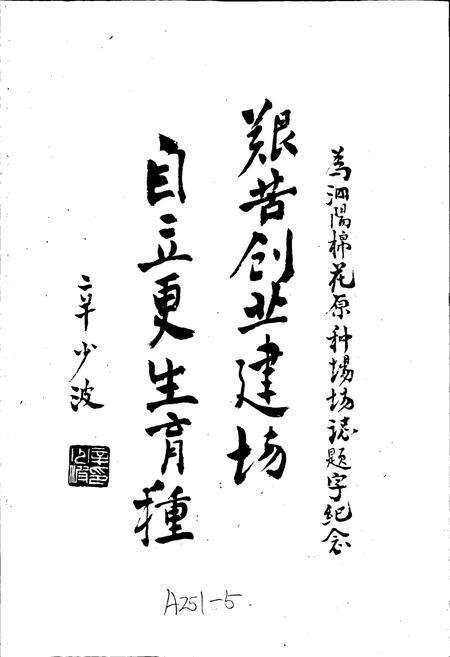 为泗陽棉花原种場场志題字纪念
艱苦创业建场
自立更生育種
辛少波
A251-5